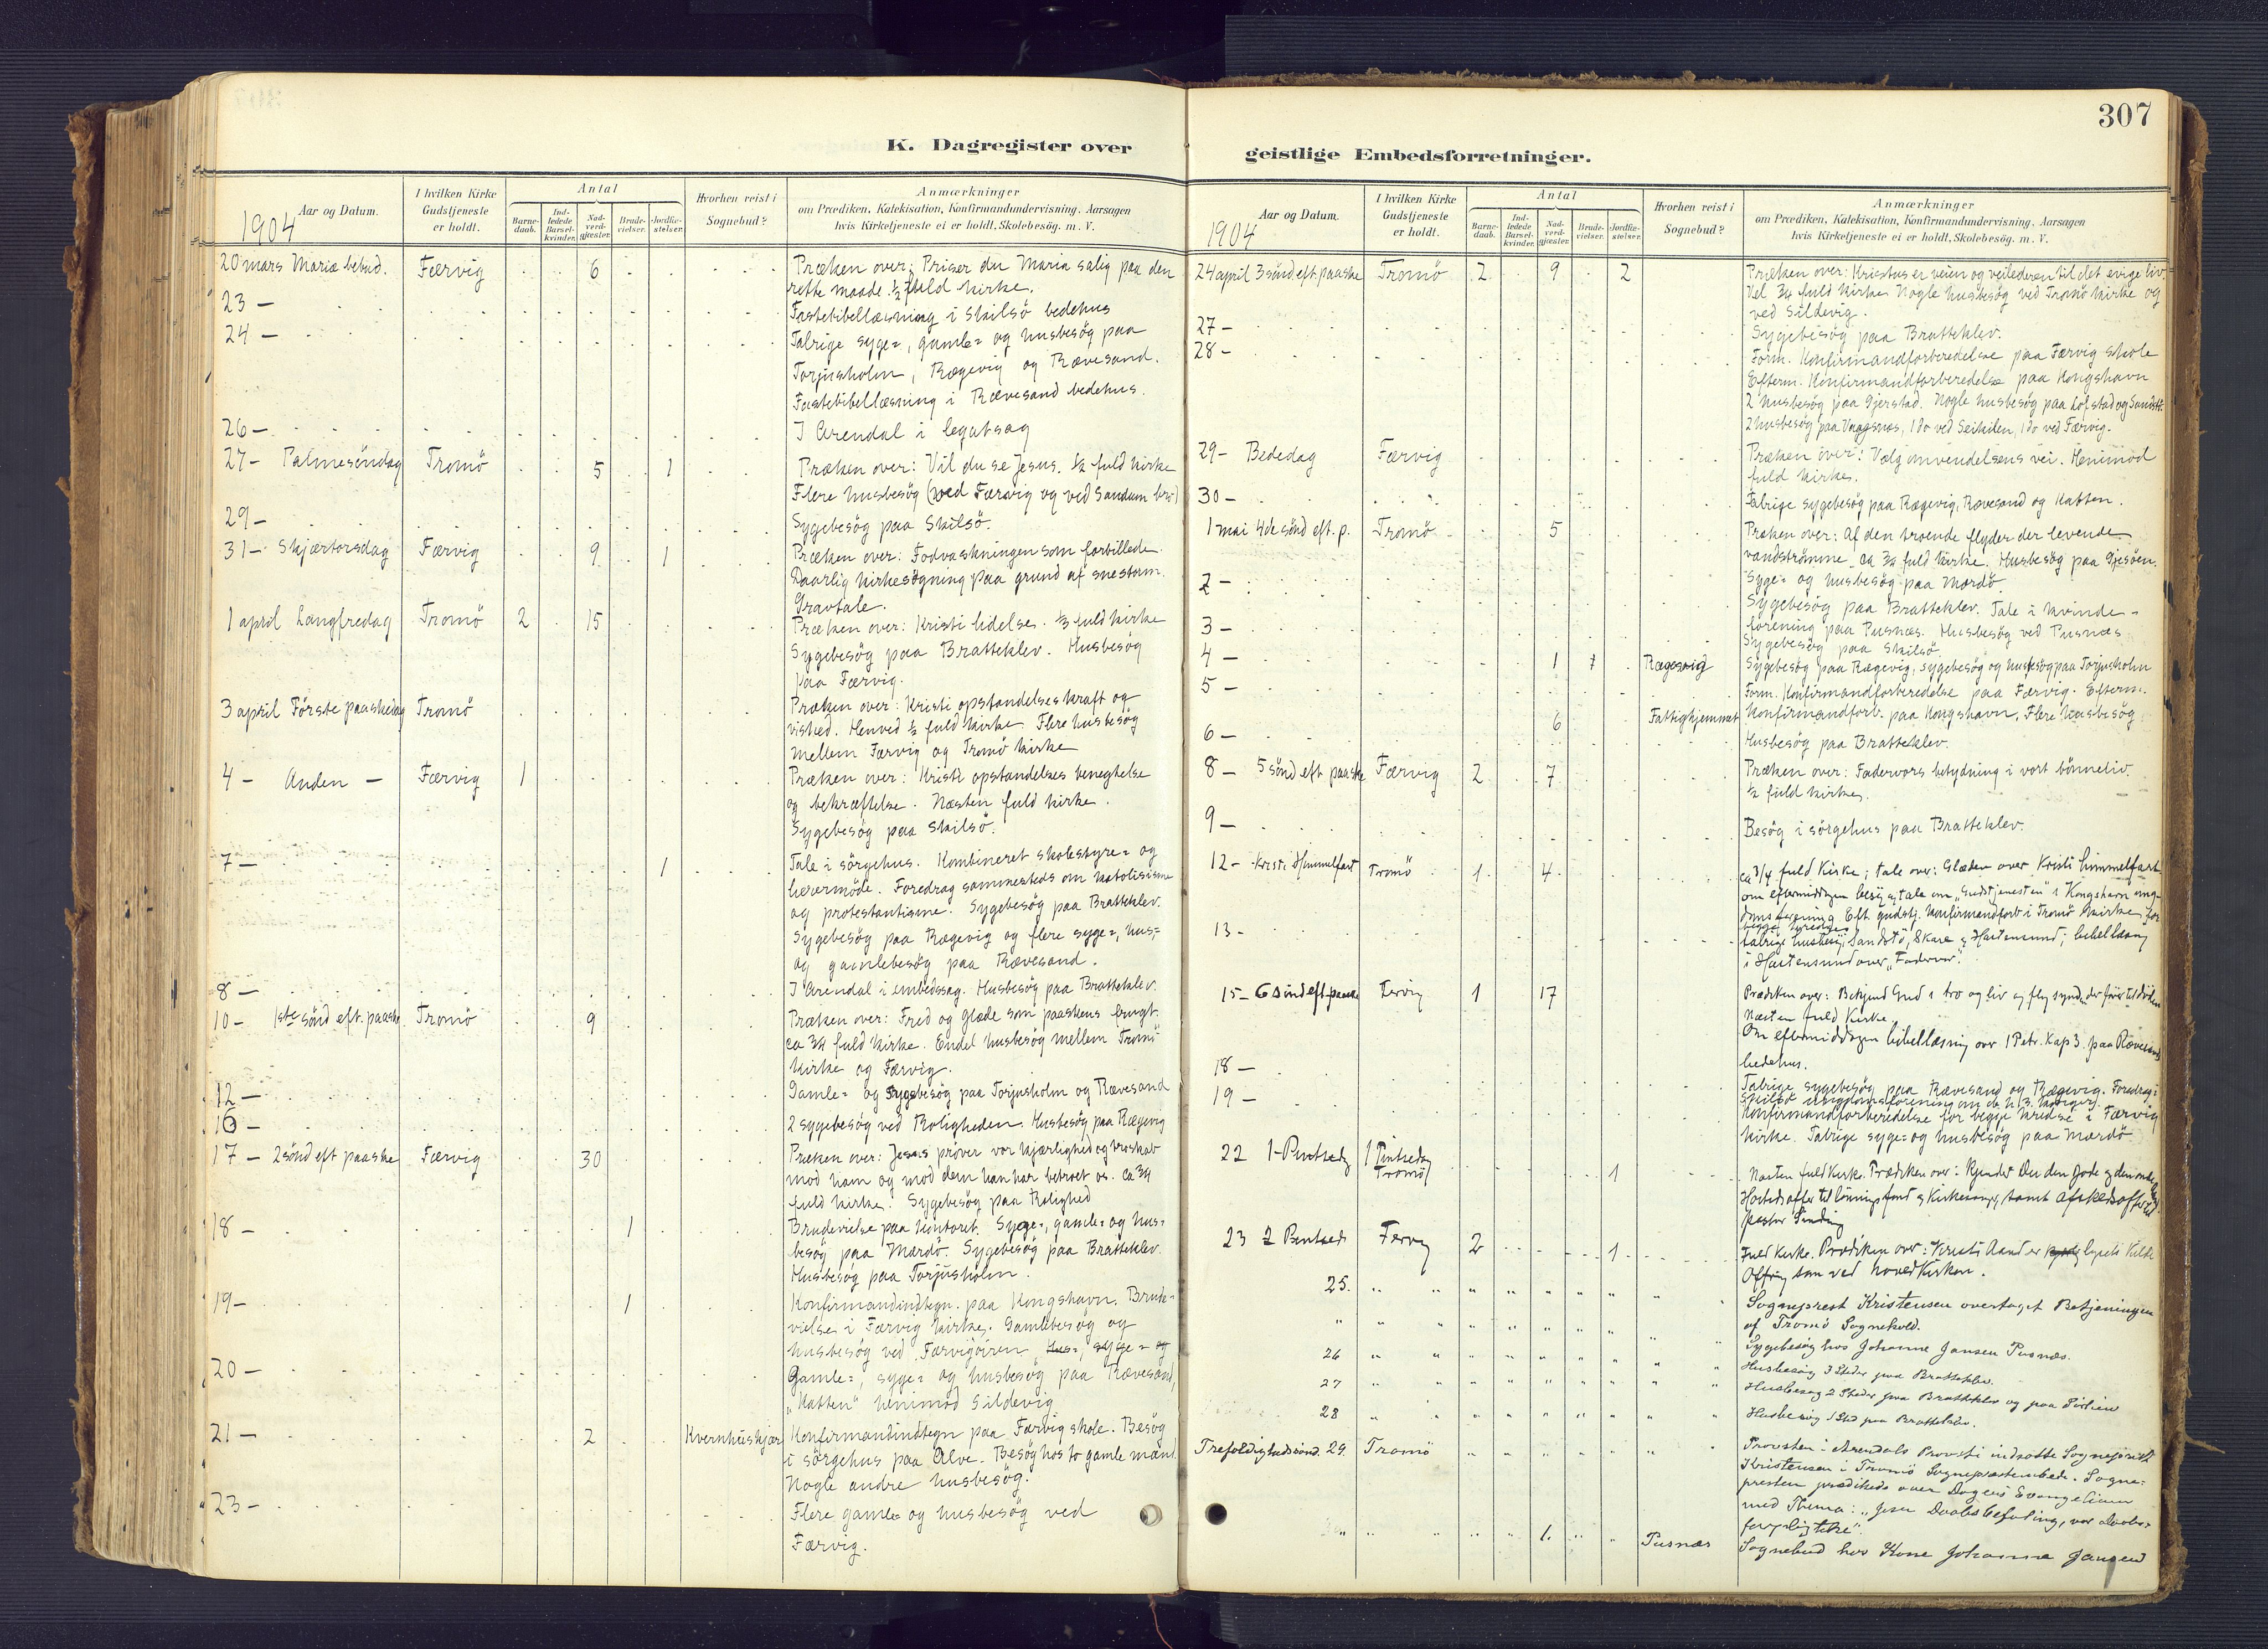 307
K. Dagregister over
geistlige Embedsforretninger.
Aar og Datum.
1904
I hvilken Kirke
Gudstjeneste
er holdt.
Antal
Barne-
daab.
Ind-
ledede
Barsel-
kvinder.
Nad-
verd-
gjæster.
Brude-
vielser.
Jordfæ-
stelser.
Hvorhen reist i
Sognebud?
Anmærkninger
om Prædiken, Katekisation, Konfirmandundervisning. Aarsagen
hvis Kirketjeneste ei er holdt, Skolebesög. m. V.
20 mars Mariæ bebud. Færvig 6 Præken over: Priser du Maria salig paa den
rette maade. ½ fuld kirke.
23 — Fastebibellæsning i Skilsö bedehus
24 — Talrige syge=, gamle= og husbesög paa
Torjusholm, Rægevig og Rævesand.
Fastebibellæsning i Rævesand bedehus.
26 — I Arendal i legatsag
27 — Palmesöndag Tromö 5 1 Præken over: Vil du se Jesus. ½ fuld kirke
Flere husbesög (ved Færvig og ved Sandum bro)
29 — Sygebesög paa Skilsö.
31 — Skjærtorsdag Færvig 9 1 Præken over: Fodvaskningen som forbillede.
Daarlig kirkesögning paa grund af snestorm.
Gravtale.
1 april Langfredag Tromö 2 15 Præken over: Kristi lidelse. ⅓ fuld kirke
Sygebesög paa Bratteklev. Husbesög
paa Færvig.
3 april Förste paaskedag Tromö Præken over: Kristi opstandelses kraft og
vished. Henved ½ fuld kirke. Flere husbesög
mellem Færvig og Tromö kirke
4 — Anden — Færvig 1 Præken over: Kristi opstandelses benegtelse
og bekræftelse. Næsten fuld kirke.
Sygebesög paa Skilsö.
7 — 1 Tale i sörgehus. Kombineret skolestyre= og
lærermöde. Foredrag sammesteds om katolisisme
og protestantisme. Sygebesög paa Bratteklev.
Sygebesög paa Rægevig og flere syge=, hus=
og gamlebesög paa Rævesand.
8 — I Arendal i embedssag. Husbesög paa Bratteklev.
10 — 1ste sönd eft. paaske Tromö 9 Præken over: Fred og glæde som paaskens frugt.
ca ¾ fuld kirke. Endel husbesög mellem Tromö
kirke og Færvig.
12 — Gamle= og Sygebesög paa Torjusholm og Rævesand
16 — 2 sygebesög ved Roligheden. Husbesög paa Rægevig
17 — 2 sönd eft paaske Færvig 30 Præken over: Jesus pröver vor kjærlighed og troskab
mod ham og mod dem han har betroet os. ca ¾
fuld kirke. Sygebesög paa Rolighed
18 — 1 Brudevielse paa kontoret. Syge=, gamle= og hus=
besög paa Mærdö. Sygebesög paa Bratteklev.
Husbesög paa Torjusholm.
19 — 1 Konfirmandindtegn. paa Kongshavn. Brude=
vielse i Færvig kirke. Gamlebesög og
husbesög ved Færvigöiren. Hus=, syge= og
20 — Gamle=, syge= og husbesög paa Rævesand,
"Hatten" henimod Sildevig
21 — 2 Kvernhuskjær Konfirmandindtegn paa Færvig skole. Besög
i sörgehus paa Alve. Besög hos to gamle mænd.
Nogle andre husbesög.
23 — Flere gamle og husbesög ved
Færvig.
Aar og Datum.
1904
I hvilken Kirke
Gudstjeneste
er holdt.
Antal
Barne-
daab.
Ind-
ledede
Barsel-
kvinder.
Nad-
verd-
gjæster.
Brude-
vielser.
Jordfæ-
stelser.
Hvorhen reist i
Sognebud?
Anmærkninger
om Prædiken, Katekisation, Konfirmandundervisning. Aarsagen
hvis Kirketjeneste ei er holdt, Skolebesög. m. V.
24 april 3 sönd eft paaske Tromö 2 9 2 Præken over: Kristus er veien og veilederen til det evige liv.
Vel ¾ fuld kirke. Nogle husbesög ved Tromö kirke og
ved Sildevig.
27 — Sygebesög paa Bratteklev.
28 — Form. Konfirmandforberedelse paa Færvig skole
Efterm. Konfirmandforberedelse paa Kongshavn
2 husbesög paa Gjerstad. Nogle husbesög paa Lofstad og Sandst.
2 husbesög paa Vragsnes, 1 do ved Seikilen, 1 do ved Færvig.
29 — Bededag Færvig Præken over: Vælg omvendelsens vei. Henimod
fuld kirke.
30 — Talrige sygebesög paa Rægevig, Rævesand og Hatten.
1 mai 4de sönd eft. p. Tromö 5 Præken over: Af den troende flyder der levende
vandströmme. ca ¾ fuld kirke. Husbesög paa Gjesöen.
2 — Syge= og husbesög paa Mærdö
Sygebesög paa Bratteklev. Tale i kvinde=
3 — forening paa Pusnæs. Husbesög ved Pusnæs
Sygebesög paa Skilsö
4 — 1 Rægevig Sygebesög paa Rægevig, sygebesög og husbesög paa Torjusholm
5 — Form. Konfirmandforberedelse paa Færvig. Efterm.
6 Fattighjemmet Konfirmandforb. paa Kongshavn. Flere husbesög
6 — Husbesög paa Bratteklev.
8 — 5 sönd eft paaske Færvig 2 7 Præken over: Fadervors betydning i vort bönneliv.
½ fuld kirke.
9 — Besög i sörgehus paa Bratteklev.
12 — Kristi Himmelfart Tromö 1 4 ca ¾ fuld Kirke; tale over: Glæden over Kristi himmelfart
om eftermiddagen besög og tale om "Gudstjenesten" i Kongshavn ung-
domsforening Eft. gudstj. konfirmandforb i Tromö kirke for
begge kredse
13 — talrige husbesög, Sandstö, Skare og Hastensund; bibellæsning
i Hastensund over "Fadervor".
15 — 6 sönd eft paaske Færvig 1 17 Prædiken over: Bekjend Gud i tro og liv og fly synden der förer til döden
Næsten fuld Kirke.
Om eftermiddagen bibellæsning over 1 Petr. Kap 3. paa Rævesands
bedehus.
18 — Talrige sygebesög paa Rævesand og Rægevig. Foredrag i
Skilsö ungdomsforening
19 — Konfirmandforberedelse for begge kredse i Færvig
kirke. Talrige syge= og husbesög paa Mærdö
22 1-Pintsedg 1 Pintsedag
Tromö 1 Næsten fuld Kirke. Prædiken over: Kjender Du den gode
Höitidsoffer til lönningsfond og Kirkesanger, samt Afskedsoffer til
pastor Sinding
23 2 Pintsed Færvig 2 1 Fuld Kirke. Prædiken over: Kristi Aand er lysets Kilde
Offring som ved hovedkirken.
25. " Sogneprest Kristensen overtaget Betjeningen
af Tromö Sognekald.
26 " Sygebesög hos Johanne Jansen Pusnæs.
Husbesög 3 Steder paa Bratteklev.
27 " Husbesög 2 Steder paa Bratteklev og paa
28 " Husbesög 1 Sted paa Bratteklev.
Trefoldighedssönd. 29. Tromö Provsten i Arendals Provsti indsatte Sogneprest
Kristensen i Tromö Sogneprestembede. Sogne-
presten prædikede over Dagens Evangelium
med Thema: "Jesu Daabsbefaling, vor Daabs-
forpligtelse".
" 1. Pusnæs Sognebud hos Kone Johanne Jansen